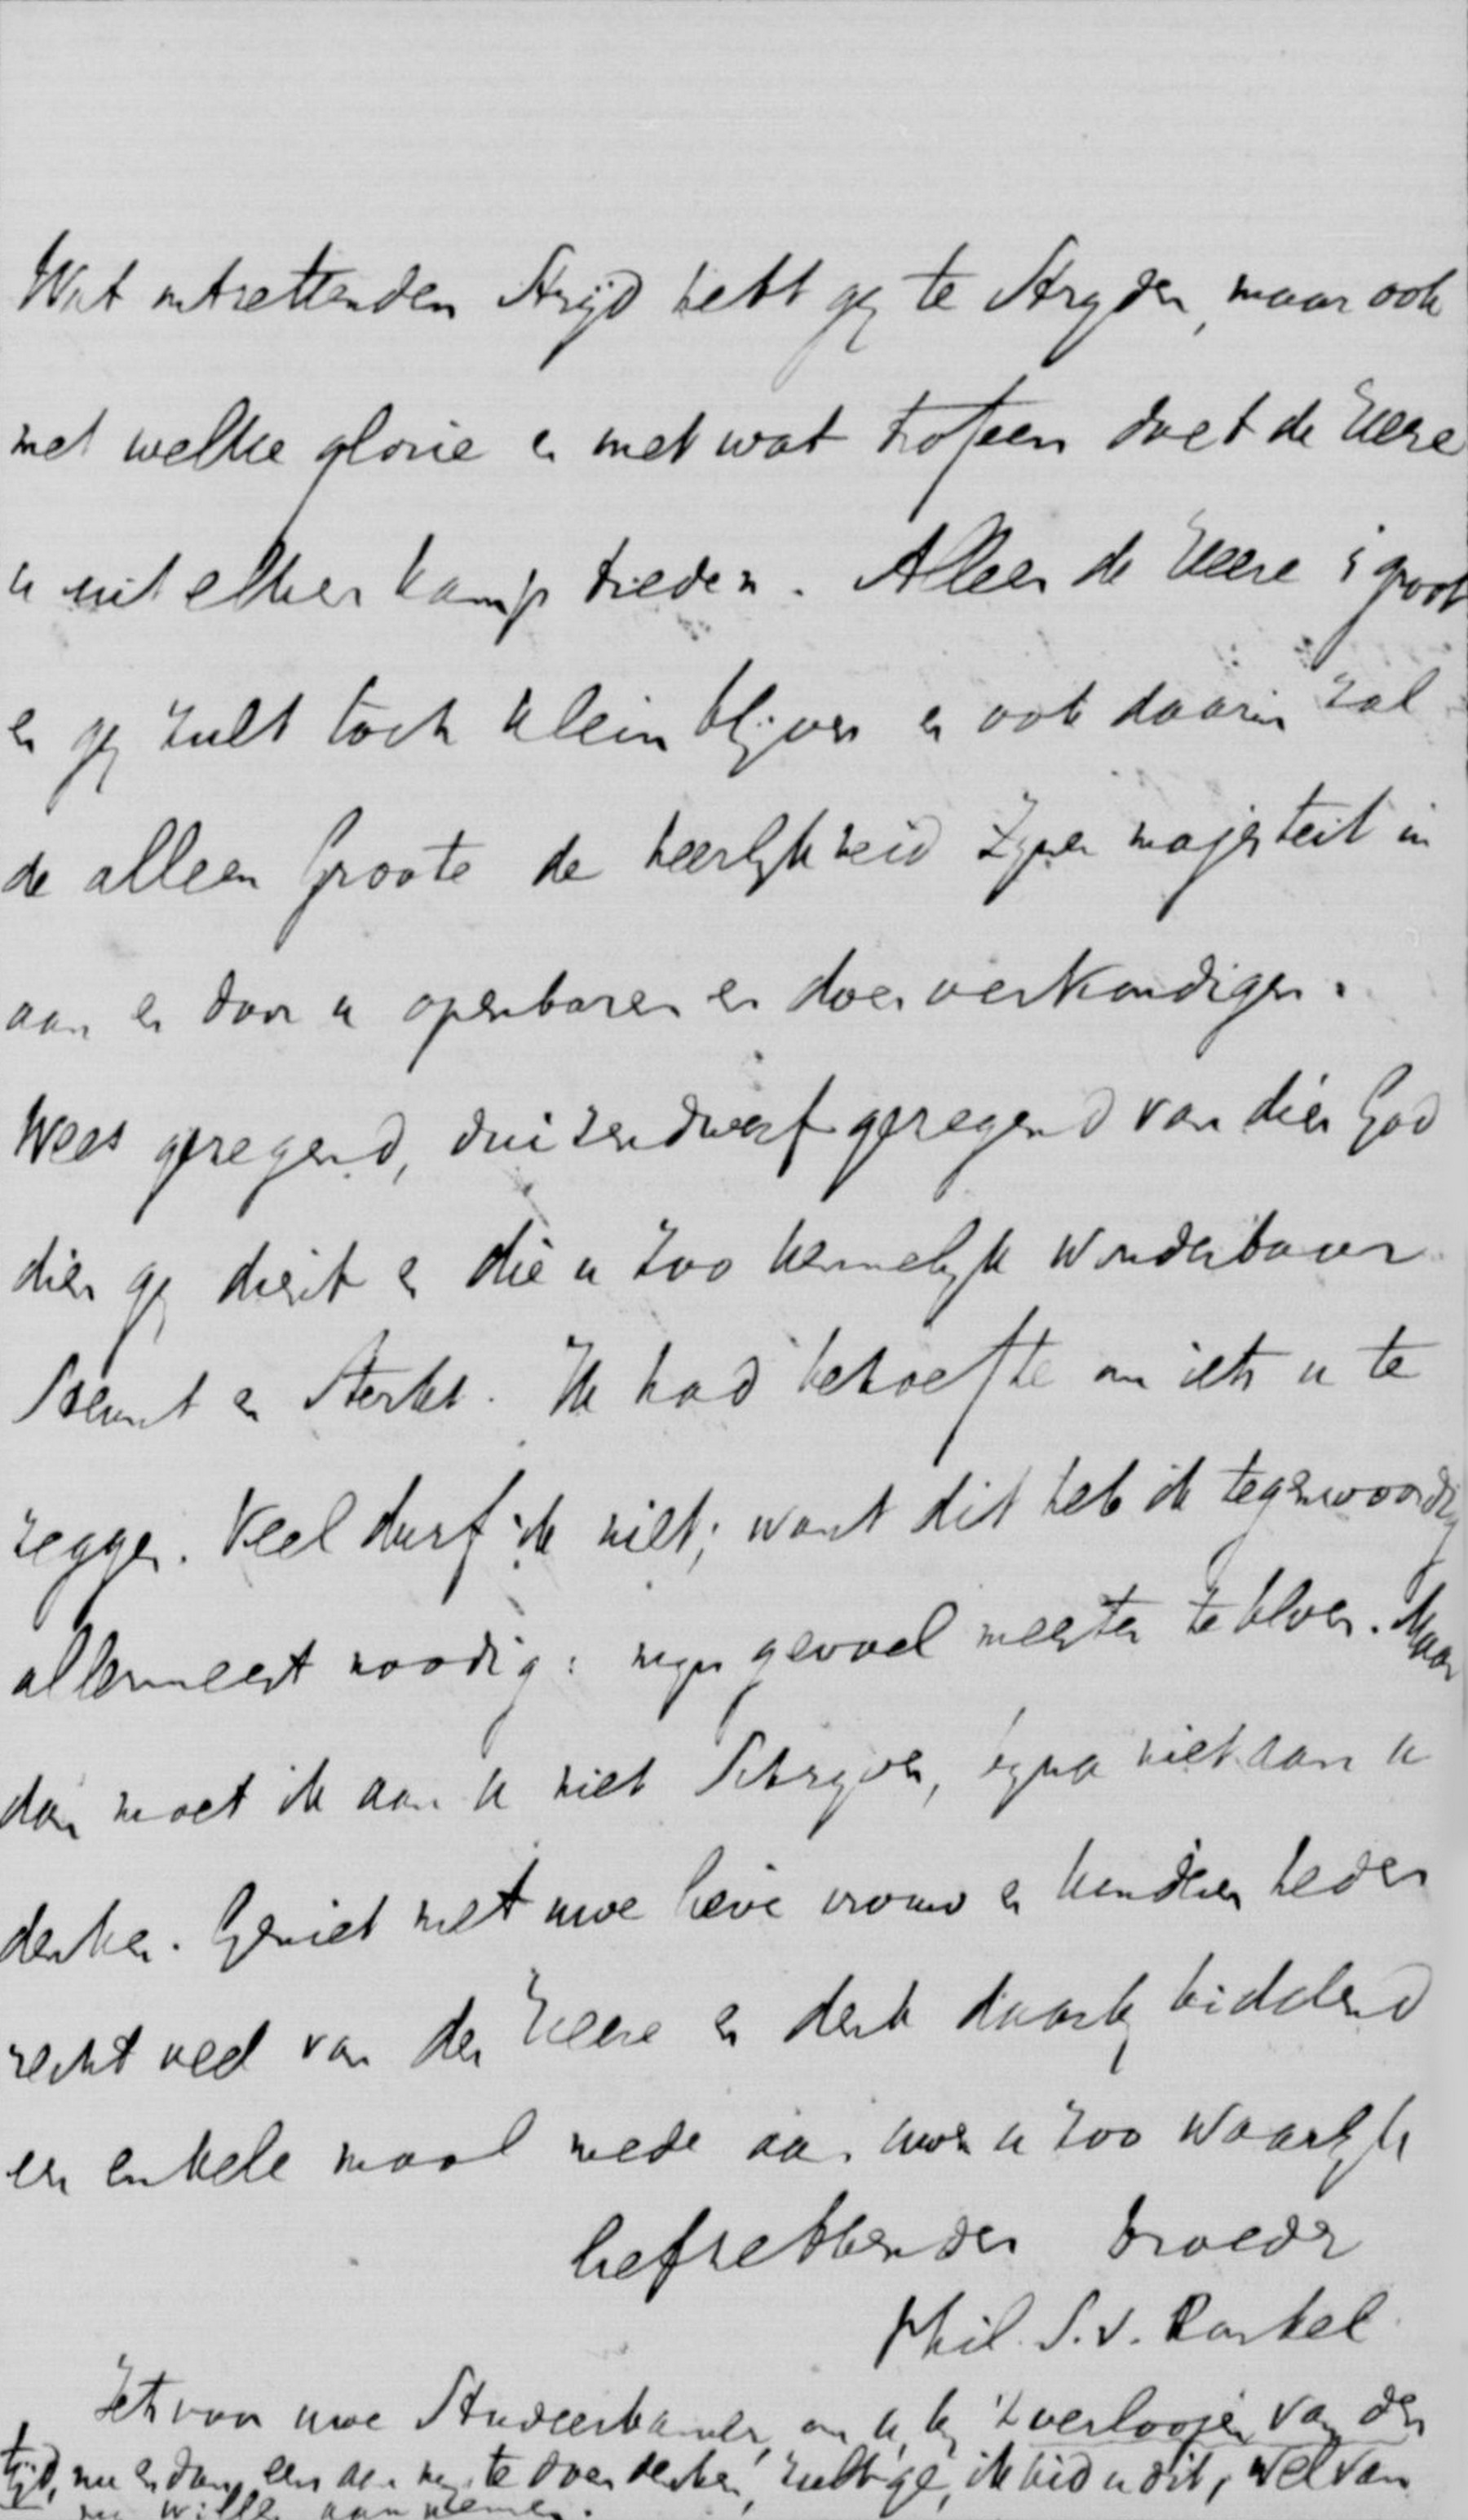 Wat ontzettenden Strijd hebt gij te Strijden, maar ook
met welke glorie en met wat trofeen doet de Heere
u uit elken kamp treden. Alleen de Heere is groot
en gij zult toch klein blijven en ook daarin zal
de alleen Groote de heerlijkheid Zijner majesteit in
aan en door u openbaren en doen verkondigen.
Wees gezegend, duizendwerf gezegend van dien God
dien gij dient en die u zoo kennelijk wonderbaar
Steunt en Sterkt. Ik had behoefte om iets u te
zeggen. Veel durf ik niet; want dit heb ik tegenwoordig
allermeest noodig: mijn gevoel meester te blijven. Maar
dan moet ik aan u niet Schrijven, bijna niet aan u
denken. Geniet met uwe lieve vrouw en kinderen heden
recht veel van den Heere en denk daarbij biddend
een enkele maal mede aan uwen u zoo waarlijk
liefhebbenden broeder
Phil. S. v. Ronkel
Iets voor uwe Studeerkamer, om u bij 't verloopen van den
tijd, nu en dan eens aan mij te doen denken, zult ge, ik bid u dit, wel van
mij willen aannemen.